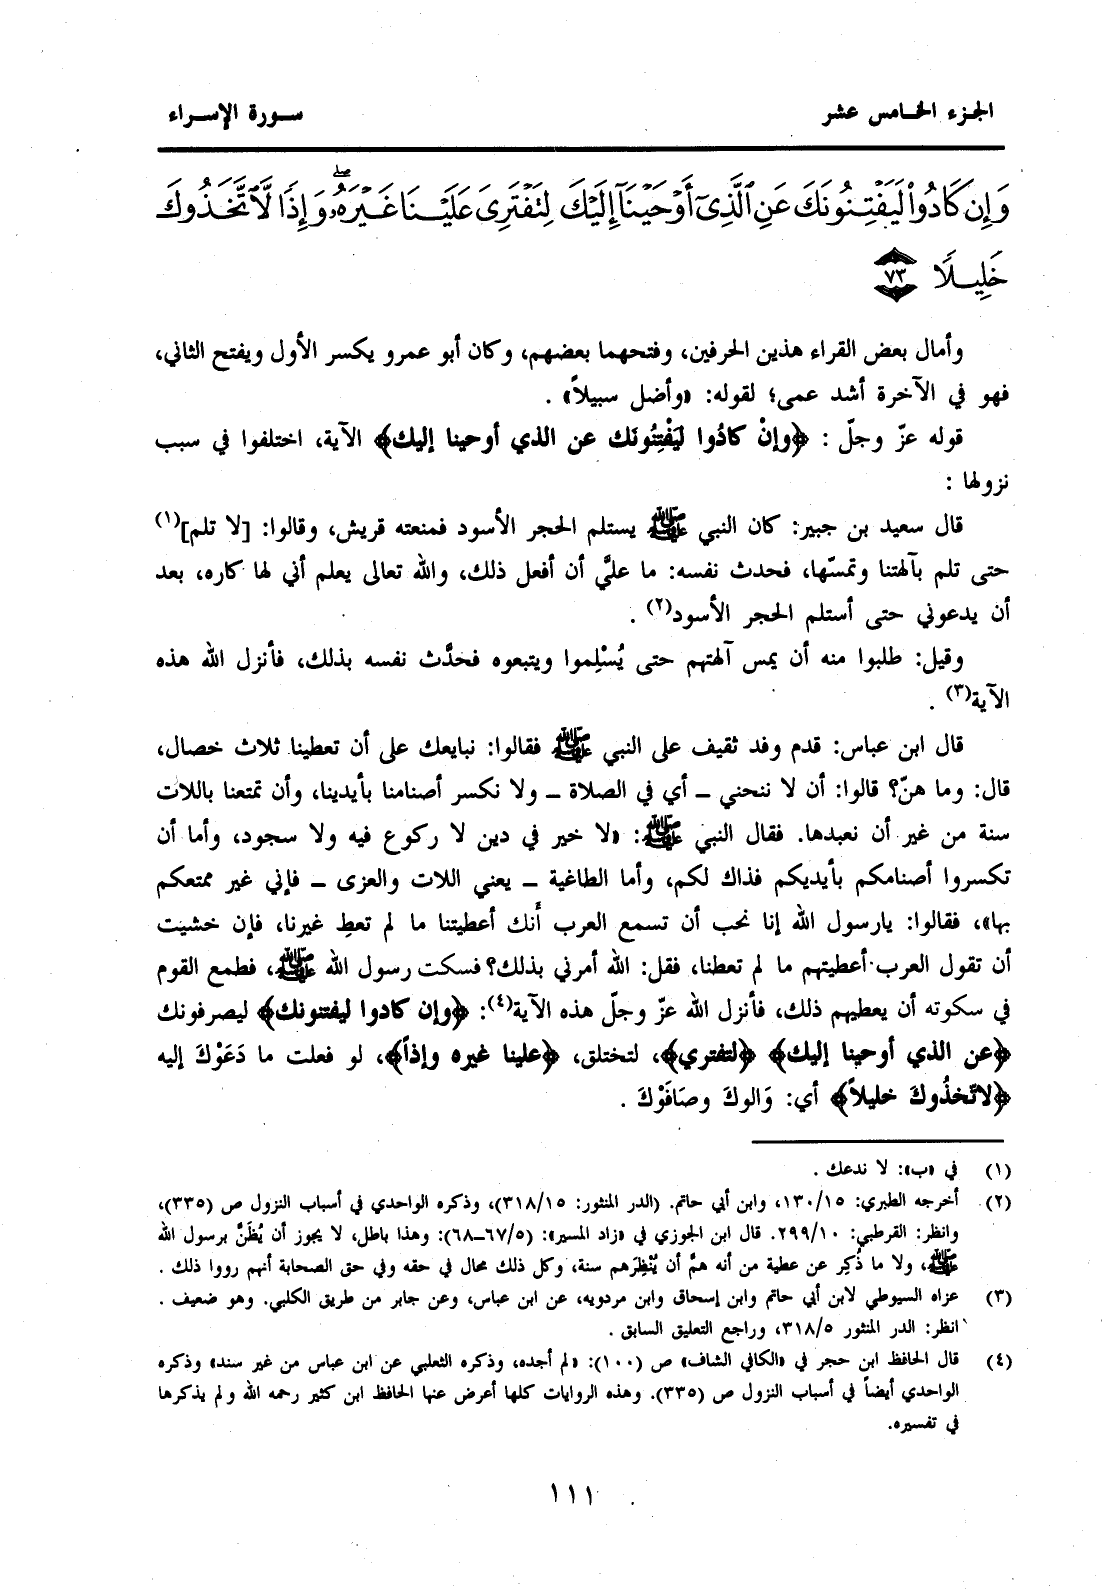 الجزء الخامس عشر
سورة الإسراء
وَإِن كَادُوا۟ لَيَفْتِنُونَكَ عَنِ ٱلَّذِىٓ أَوْحَيْنَآ إِلَيْكَ لِتَفْتَرِىَ عَلَيْنَا غَيْرَهُۥ ۖ وَإِذًا لَّٱتَّخَذُوكَ
خَلِيلًا ٧٣
وأمال بعض القراء هذين الحرفين، وفتحهما بعضهم، وكان أبو عمرو يكسر الأول ويفتح الثاني،
فهو في الآخرة أشد عمى؛ لقوله: «وأضل سبيلاً» .
قوله عزّ وجلّ : ﴿وإنْ كادُوا ليَفْتِنُونَك عن الذي أوحينا إليك﴾ الآية، اختلفوا في سبب
نزولها :
قال سعيد بن جبير: كان النبي ﷺ يستلم الحجر الأسود فمنعته قريش، وقالوا: [لا تلم](١)
حتى تلم بآلهتنا وتمسّها، فحدث نفسه: ما عليَّ أن أفعل ذلك، والله تعالى يعلم أني لها كاره، بعد
أن يدعوني حتى أستلم الحجر الأسود(٢) .
وقيل: طلبوا منه أن يمس آلهتهم حتى يُسْلِموا ويتبعوه فحدَّث نفسه بذلك، فأنزل الله هذه
الآية(٣) .
قال ابن عباس: قدم وفد ثقيف على النبي ﷺ فقالوا: نبايعك على أن تعطينا ثلاث خصال،
قال: وما هنّ؟ قالوا: أن لا ننحني ــ أي في الصلاة ــ ولا نكسر أصنامنا بأيدينا، وأن تمتعنا باللات
سنة من غير أن نعبدها. فقال النبي ﷺ: «لا خير في دين لا ركوع فيه ولا سجود، وأما أن
تكسروا أصنامكم بأيديكم فذاك لكم، وأما الطاغية ــ يعني اللات والعزى ــ فإني غير ممتعكم
بها»، فقالوا: يارسول الله إنا نحب أن تسمع العرب أنك أعطيتنا ما لم تعطِ غيرنا، فإن خشيت
أن تقول العرب أعطيتهم ما لم تعطنا، فقل: الله أمرني بذلك؟ فسكت رسول الله ﷺ، فطمع القوم
في سكوته أن يعطيهم ذلك، فأنزل الله عزّ وجلّ هذه الآية(٤): ﴿وإن كادوا ليفتنونك﴾ ليصرفونك
﴿عن الذي أوحينا إليك﴾ ﴿لتفتري﴾، لتختلق، ﴿علينا غيره وإذاً﴾، لو فعلت ما دَعَوْكَ إليه
﴿لاتّخذُوكَ خليلاً﴾ أي: وَالوكَ وصَافَوْكَ .
(١) في «ب»: لا ندعك .
(٢) أخرجه الطبري: ١٥/١٣٠، وابن أبي حاتم. (الدر المنثور: ٣١٨/١٥)، وذكره الواحدي في أسباب النزول ص (٣٣٥)،
وانظر: القرطبي: ٢٩٩/١٠. قال ابن الجوزي في «زاد المسير»: (٦٧/٥ــ٦٨): وهذا باطل، لا يجوز أن يُظَنَّ برسول الله
ﷺ، ولا ما ذُكِر عن عطية من أنه همَّ أن يُنْظِرَهم سنة، وكل ذلك محال في حقه وفي حق الصحابة أنهم رووا ذلك .
(٣) عزاه السيوطي لابن أبي حاتم وابن إسحاق وابن مردويه، عن ابن عباس، وعن جابر من طريق الكلبي. وهو ضعيف .
انظر: الدر المنثور ٣١٨/٥، وراجع التعليق السابق .
(٤) قال الحافظ ابن حجر في «الكافي الشاف» ص (١٠٠): «لم أجده، وذكره الثعلبي عن ابن عباس من غير سند» وذكره
الواحدي أيضاً في أسباب النزول ص (٣٣٥). وهذه الروايات كلها أعرض عنها الحافظ ابن كثير رحمه الله ولم يذكرها
في تفسيره.
١١١